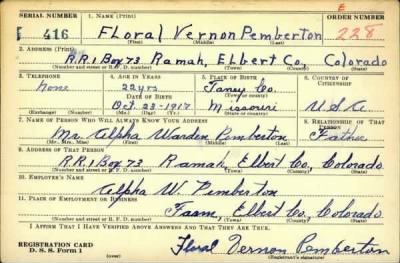 E
SERIAL NUMBER 1. NAME (Print) ORDER NUMBER
416 Floral Vernon Pemberton 228
(First) (Middle) (Last)
2. ADDRESS (Print)
R.R.1 Box 73 Ramah, Elbert Co, Colorado
(Number and street or R. F. D. number) (Town) (County) (State)
3. TELEPHONE 4. AGE IN YEARS 5. PLACE OF BIRTH 6. COUNTRY OF CITIZENSHIP
none 22 yrs Taney Co.
DATE OF BIRTH (Town or county)
Oct. 23-1917 Missouri U.S.A
(Exchange) (Number) (Mo.) (Day) (Yr.) (State or country)
7. NAME OF PERSON WHO WILL ALWAYS KNOW YOUR ADDRESS 8. RELATIONSHIP OF THAT PERSON
Mr. Alpha Warden Pemberton Father
(Mr., Mrs., Miss) (First) (Middle) (Last)
9. ADDRESS OF THAT PERSON
R.R.1 Box 73 Ramah, Elbert Co, Colorado
(Number and street or R. F. D. number) (Town) (County) (State)
10. EMPLOYER'S NAME
Alpha W. Pemberton
11. PLACE OF EMPLOYMENT OR BUSINESS
Elbert Co, Colorado
(Number and street or R. F. D. number) (Town) (County) (State)
I AFFIRM THAT I HAVE VERIFIED ABOVE ANSWERS AND THAT THEY ARE TRUE.
REGISTRATION CARD
D. S. S. Form 1 Floral Vernon Pemberton
(Registrant's signature)